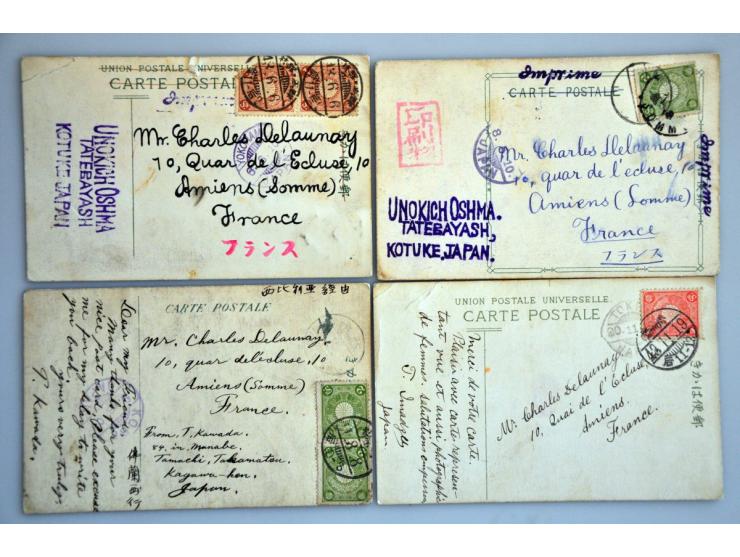 UNION POSTALE UNIVERSELLE
CARTE POSTALE
Imprime
UNOKICH OSHMA
TATEBAYASH
KOTUKE JAPAN
Mr. Charles Delaunay
10, Quar de l'Ecluse, 10
Amiens (Somme)
France
フランス
Imprime
CARTE POSTALE
JAPAN
Mr. Charles Delaunay
10, quar de l'ecluse, 10
Amiens (Somme)
France
フランス
Imprime
UNOKICH OSHMA.
TATEBAYASH,
KOTUKE, JAPAN.
西比利亜経由
CARTE POSTALE
Mr. Charles Delaunay,
10, quar delécluse, 10
Amiens (Somme)
France.
From, T, Kawada.
84, in Manabe.
Tamachi, Takamatsu
Kagawa-ken,
Japan.
Dear my Friend,
Many thanks for your
nice post card. Please excuse
me for my delay to write
you back.
yours very truly,
T. Kawada,
UNION POSTALE UNIVERSELLE.
CARTE POSTALE
きかは便郵
Mr. Charles Delaunay
10, Quai de l'Ecluse
Amiens.
France.
Merci de votre carte.
Plaisir avec carte represen-
tant vue et aussi photographie
de femmes, salutations empressees
Japan